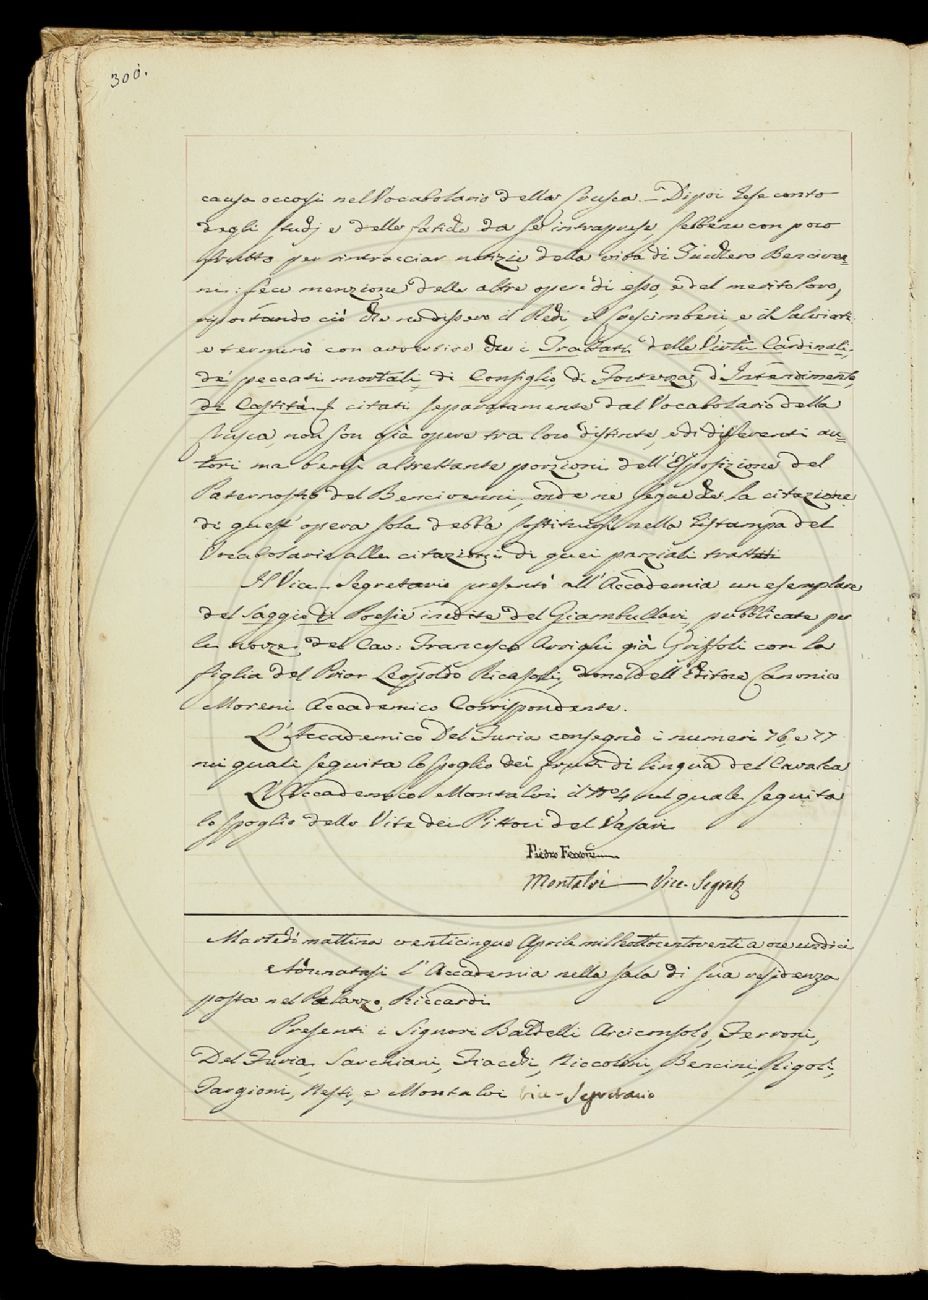 300.
causa occorsi nel Vocabolario della Crusca. = Dipoi rese conto
degli studj e delle fatiche da se intraprese, sebbene con poco
frutto per rintracciar notizie della vita di Zucchero Benciven=
ni: fece menzione delle altre opere di esso, e del merito loro,
riportando ciò che ne dissero il Redi, il Crescimbeni, e il Salviati
e terminò con avvertire che i Trattati delle Virtù Cardinali,
de' peccati mortali, di Consiglio, di Fortezza, d'Intendimento,
di Castità citati separatamente dal Vocabolario della
Crusca, non son già opere tra loro distinte e di differenti au=
tori ma bensì altrettante porzioni dell'Esposizione del
Paternostro del Bencivenni, onde ne segue che la citazione
di quest'opera sola debba sostituirsi nella ristampa del
Vocabolario alle citazioni di quei parziali trattati
Il Vice-Segretario presentò all'Accademia un esemplare
del saggio di Poesie inedite del Giambullari, pubblicate per
le nozze del Cav: Francesco Arrighi già Griffoli con la
figlia del Prior Leopoldo Ricasoli, dono dell'Editore Canonico
Moreni Accademico Corrispondente.
L'Accademico Del Furia consegnò i numeri 76, e 77
nei quali seguita lo spoglio dei frutti di lingua del Cavalca
L'Accademico Montalvi il N.° 4 nel quale seguita
lo spoglio delle Vite dei Pittori del Vasari
Pietro Ferroni
Montalvi — Vice-Segret.
Martedì mattina venticinque Aprile mille ottocentoventi a ore undici
Adunatasi l'Accademia nella sala di sua residenza
posta nel Palazzo Riccardi
Presenti i Signori Baldelli Arciconsolo, Ferroni,
Del Furia, Sarchiani, Fiacchi, Niccolini, Bencini, Rigoli,
Targioni, Nesti, e Montalvi Vice-Segretario